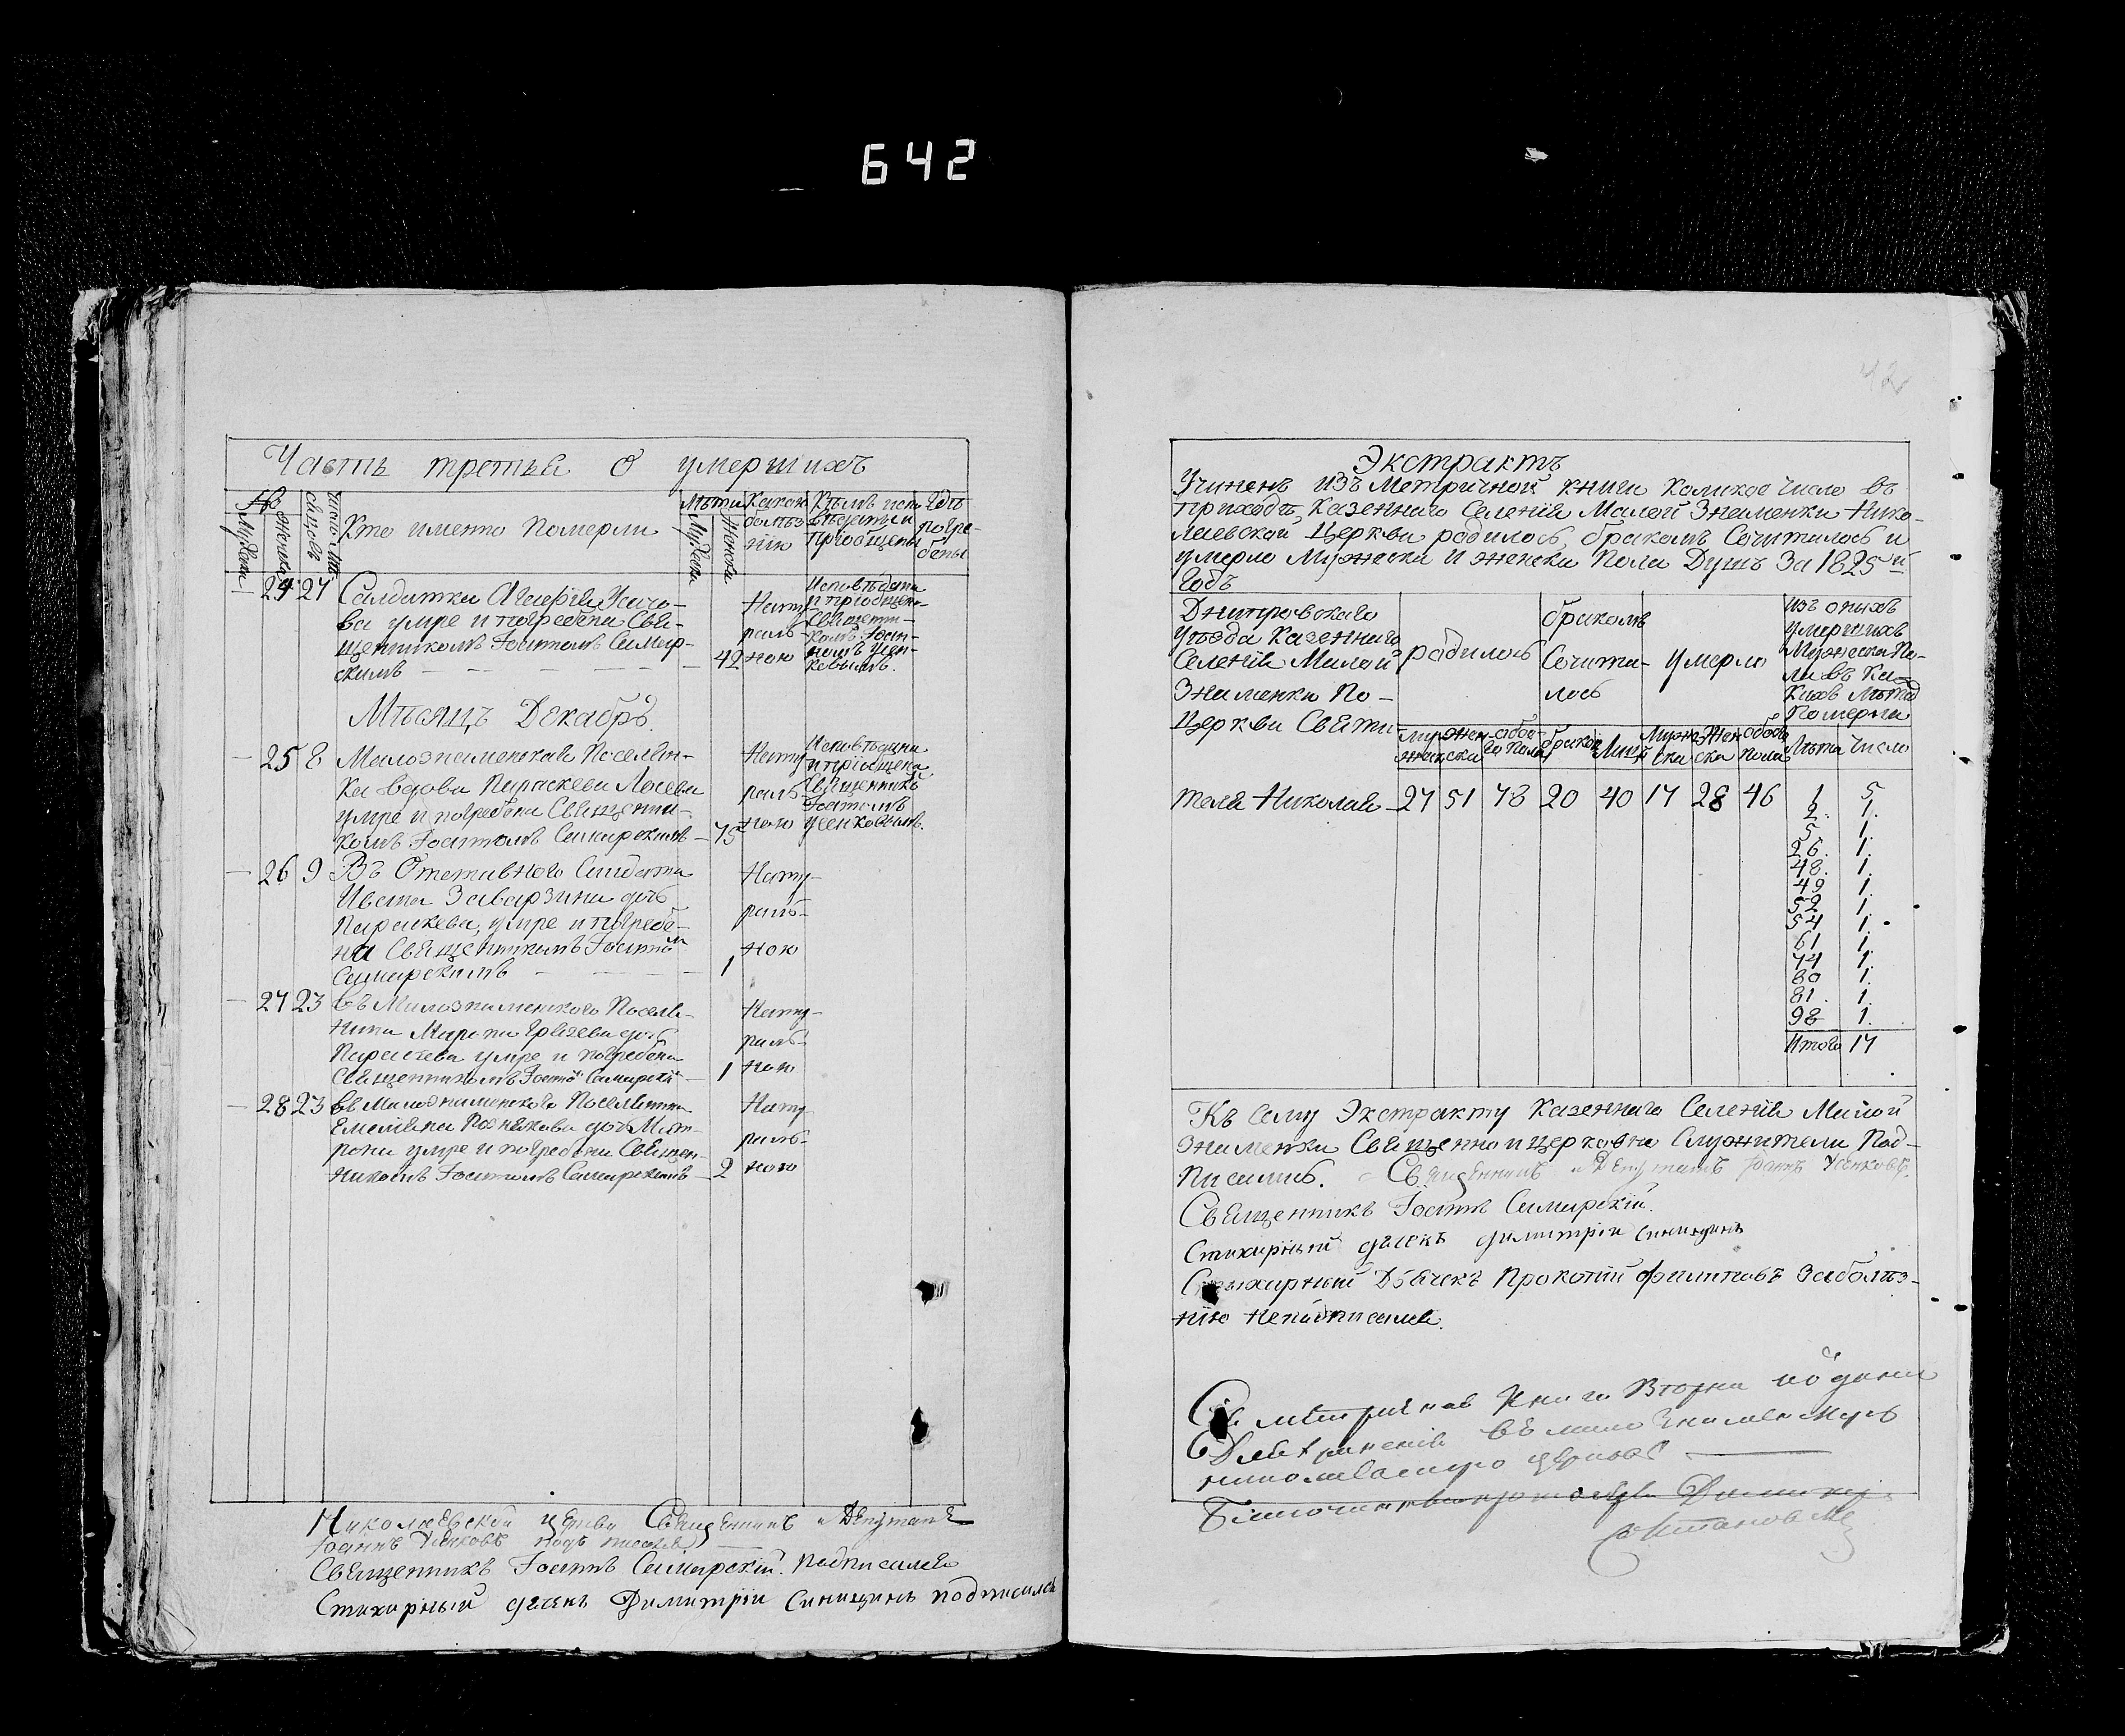 642
42
Часть третья о умершихъ
№
Мужеска
Женска
Число
Кто именно Померли
Лѣта
Мужеска
Женска
Какою
болѣз
нію
Кѣмъ испо
вѣданы и
пріобщены
Гдѣ
погре-
бены
24 27
Салдатка
ва умре и погребена Свя-
щенникомъ Іоанномъ Самар-
скимъ
42
Нату
раль
ною
Исповѣдана
и пріобщена
Священни-
комъ Іоан-
номъ Усен-
ковымъ.
Мѣсяцъ Декабрь.
25 8 Малознаменская Поселян-
ка вдова Параскева Лосева
умре и погребена Священни-
комъ Іоанномъ Самарскимъ 75
Нату
раль
ною
Исповѣдана
и пріобщена
Священникомъ
Іоанномъ
Усенковымъ.
26 9 Въ Отставного Салдата
Ивана Заварзина дочь
Параскева, умре и погребе-
на Священникомъ Іоанномъ
Самарскимъ 1
Нату-
раль-
ною
27 23 въ Малознаменского Поселя-
нина дочь
Параскева умре и погребена
Священникомъ Іоанномъ Самарскимъ 1
Нату-
раль-
ною
28 23 въ Малознаменского Поселянина
Емельяна дочь Мат-
рона умре и погребена Священ-
никомъ Іоанномъ Самарскимъ 2
Нату
раль-
ною
Николаевской церкви Священникъ и Депутатъ
Іоаннъ Усенковъ подписался
Священникъ Іоаннъ Самарскій. подписался
Стихарный дячекъ Димитрій Синицинъ подписался
Экстрактъ
Учиненъ изъ Метричной книги Коликое число въ
приходѣ Казенного Селенія Малой Знаменки Нико-
лаевской Церкви родилось, бракомъ Сочиталось и
умерло Мужеска и женска Пола Душъ За 1825-й
Годъ
Днепровского
Уѣзда Казенного
Селенія Малой
Знаменки По-
Церкви Святи-
родилось
бракомъ
Сочита-
лось
умерло
изъ оныхъ
умершихъ
Мужеска По-
ла въ Ка-
кихъ лѣтахъ
Померли
Муже-
ска
жен-
ска
обое-
го пола
браковъ
Лицъ
Муже
ска
Жен
ска
обоего
пола
Лѣта
Число
теля Николая 27 51 78 20 40 17 28 46
1 5
2. 1.
5. 1.
26. 1.
48. 1.
49 1.
52 1.
54 1.
61 1.
74 1.
80 1.
81. 1.
98 1.
Итого 17
Къ сему Экстракту Казенного Селенія Малой
Знаменки Священно и церковно Служители Под-
писались. Священникъ и Депутатъ Іоаннъ Усенковъ.
Священникъ Іоаннъ Самарскій.
Стихарный дячекъ Димитрій Синицинъ
Стихарный Дьячекъ Прокопій Филиповъ За болѣз-
нію неподписался.
Сія метричная Книга Втора
въ мало Знаменскую
николаевскую церковь
Димитрій